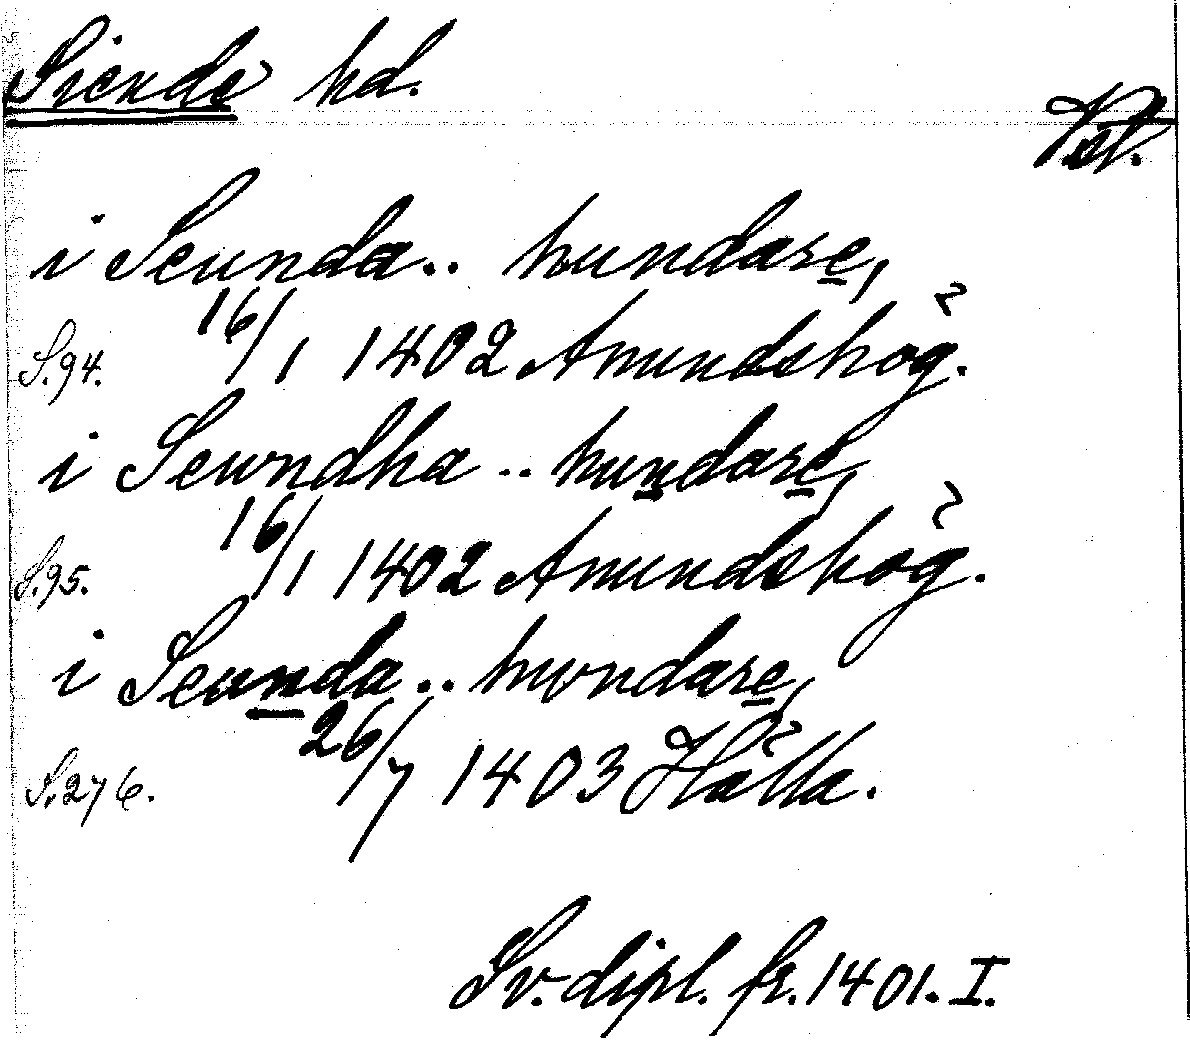 Siende hd.
Vstl.
i Seunda.. hundare,
S.94. 16/1 1402 Amundshög.
i Sewndha .. hundare,
S.95. 16/1 1402 Amundshög.
i Seunda.. hwndare,
S.276. 26/7 1403 Hälla.
Sv. dipl. fr. 1401. I.